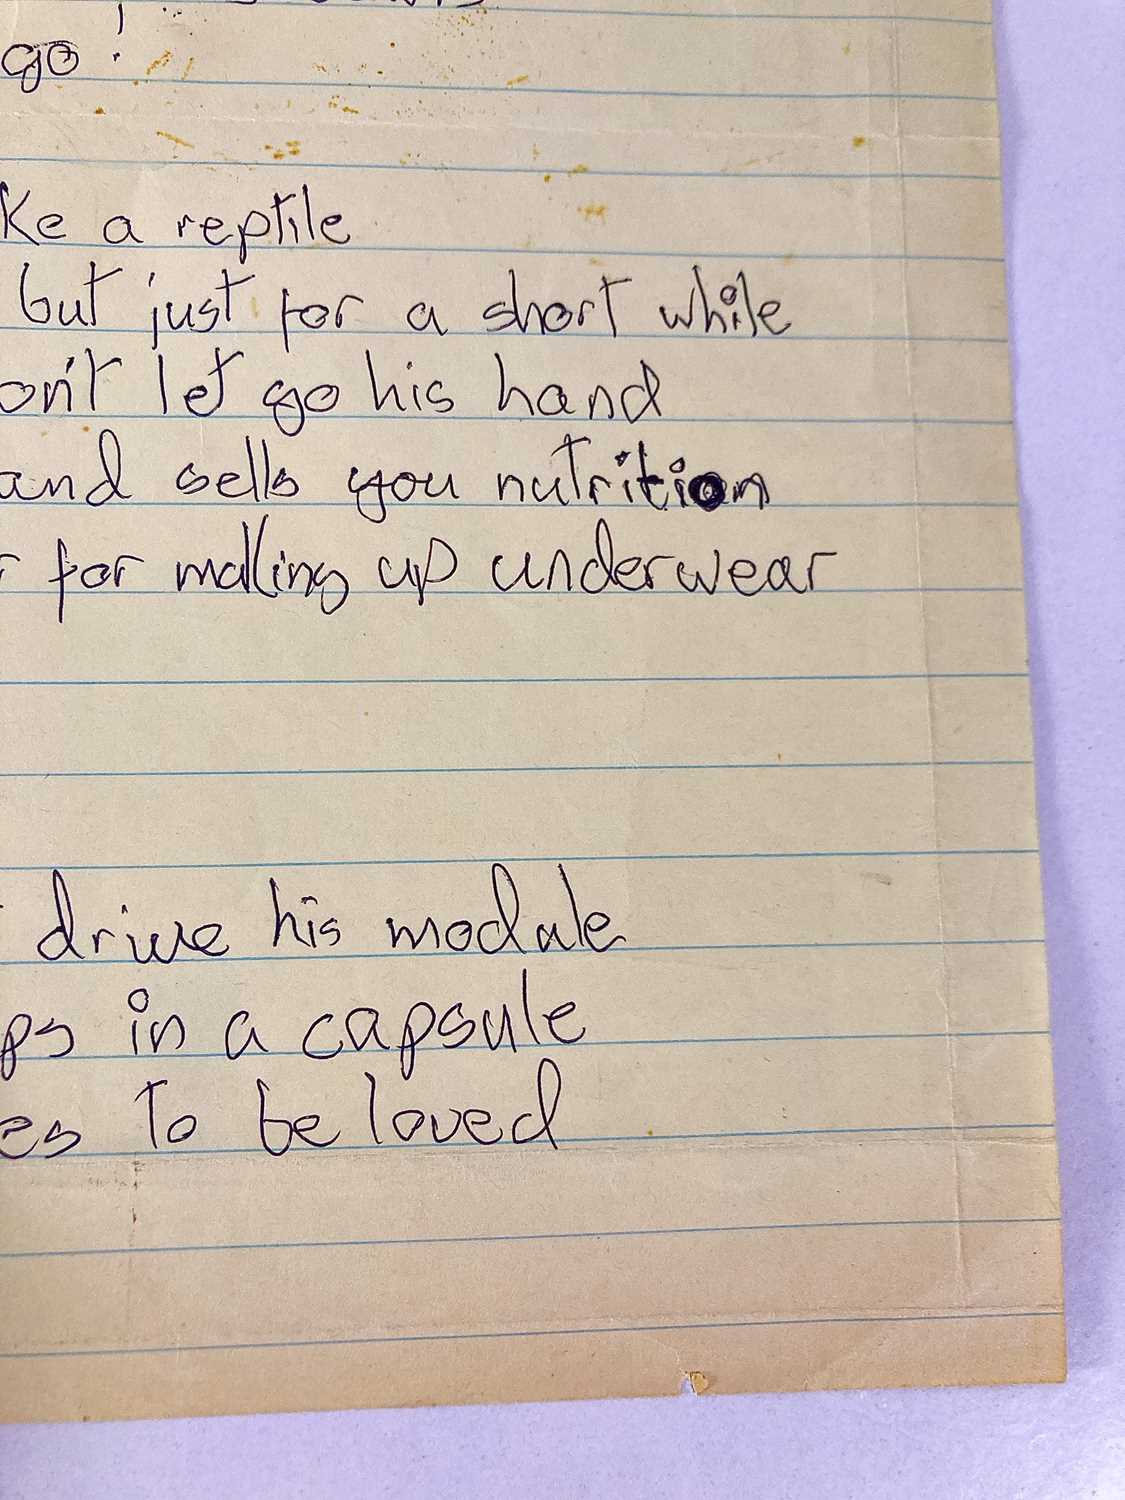 go!
ke a reptile
but just for a short while
on't let go his hand
and sells you nutrition
r for making up underwear
drive his module
ps in a capsule
es to be loved